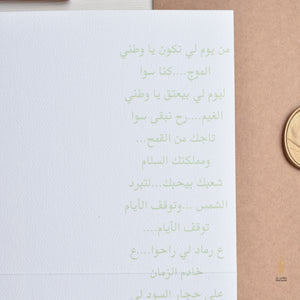 من يوم لي تكون يا وطني
الموج....كنا سوا
ليوم لي بيعتق يا وطني
الغيم....رح نبقى سوا
تاجك من القمح...
ومملكتك السلام
شعبك بيحبك...لتبرد
الشمس ...وتوقف الأيام
توقف الأيام....
ع رماد لي راحوا....ع
خادم الزمان
على حجار السود لي